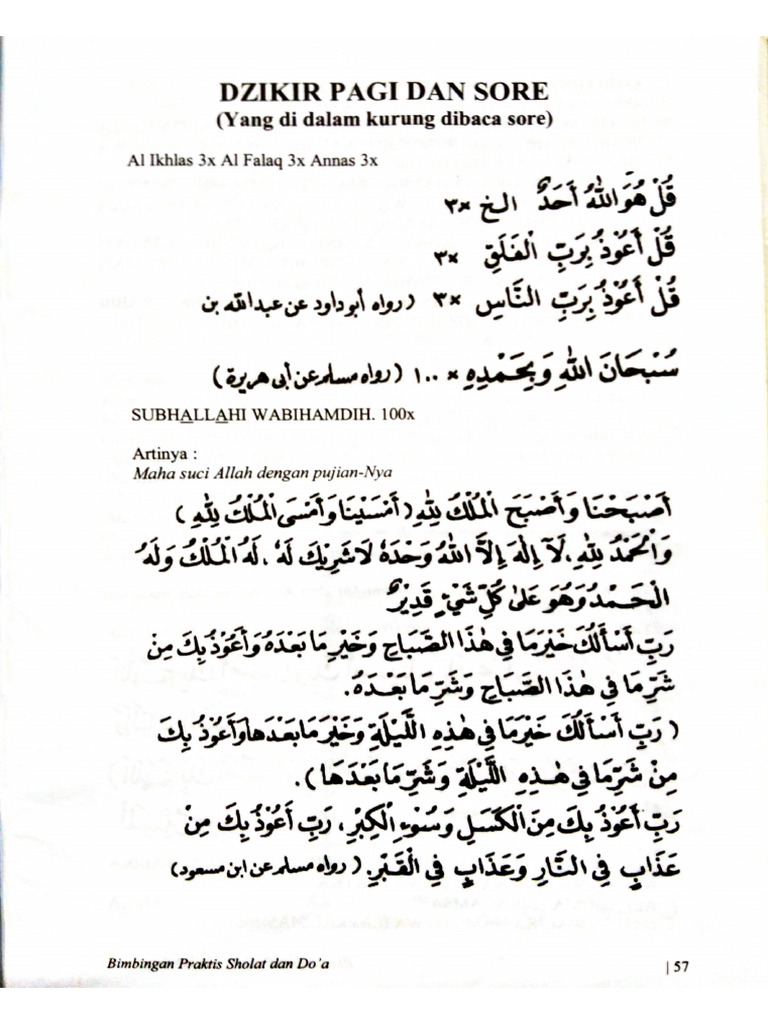 DZIKIR PAGI DAN SORE
(Yang di dalam kurung dibaca sore)
Al Ikhlas 3x Al Falaq 3x Annas 3x
قُلْ هُوَ اللّٰهُ أَحَدٌ الخ ×٣
قُلْ أَعُوْذُ بِرَبِّ الْفَلَقِ ×٣
قُلْ أَعُوْذُ بِرَبِّ النَّاسِ ×٣ (رواه أبو داود عن عبدالله بن
سُبْحَانَ اللّٰهِ وَبِحَمْدِهِ ×١٠٠ (رواه مسلم عن أبى هريرة)
SUBHALLAHI WABIHAMDIH. 100x
Artinya :
Maha suci Allah dengan pujian-Nya
أَصْبَحْنَا وَأَصْبَحَ الْمُلْكُ لِلّٰهِ (أَمْسَيْنَا وَأَمْسَى الْمُلْكُ لِلّٰهِ)
وَالْحَمْدُ لِلّٰهِ، لَآ إِلٰهَ إِلَّا اللّٰهُ وَحْدَهُ لَاشَرِيْكَ لَهُ، لَهُ الْمُلْكُ وَلَهُ
الْحَمْدُ وَهُوَ عَلَى كُلِّ شَيْءٍ قَدِيْرٌ
رَبِّ أَسْأَلُكَ خَيْرَمَا فِي هٰذَا الصَّبَاحِ وَخَيْرِ مَا بَعْدَهُ وَأَعُوْذُ بِكَ مِنْ
شَرِّ مَا فِي هٰذَا الصَّبَاحِ وَشَرِّ مَا بَعْدَهُ.
(رَبِّ أَسْأَلُكَ خَيْرَمَا فِي هٰذِهِ اللَّيْلَةِ وَخَيْرَ مَا بَعْدَهَا وَأَعُوْذُ بِكَ
مِنْ شَرِّ مَا فِي هٰذِهِ اللَّيْلَةِ وَشَرِّ مَا بَعْدَهَا).
رَبِّ أَعُوْذُ بِكَ مِنَ الْكَسَلِ وَسُوْءِ الْكِبْرِ، رَبِّ أَعُوْذُ بِكَ مِنْ
عَذَابٍ فِي النَّارِ وَعَذَابٍ فِي الْقَبْرِ. (رواه مسلم عن ابن مسعود)
Bimbingan Praktis Sholat dan Do'a
| 57